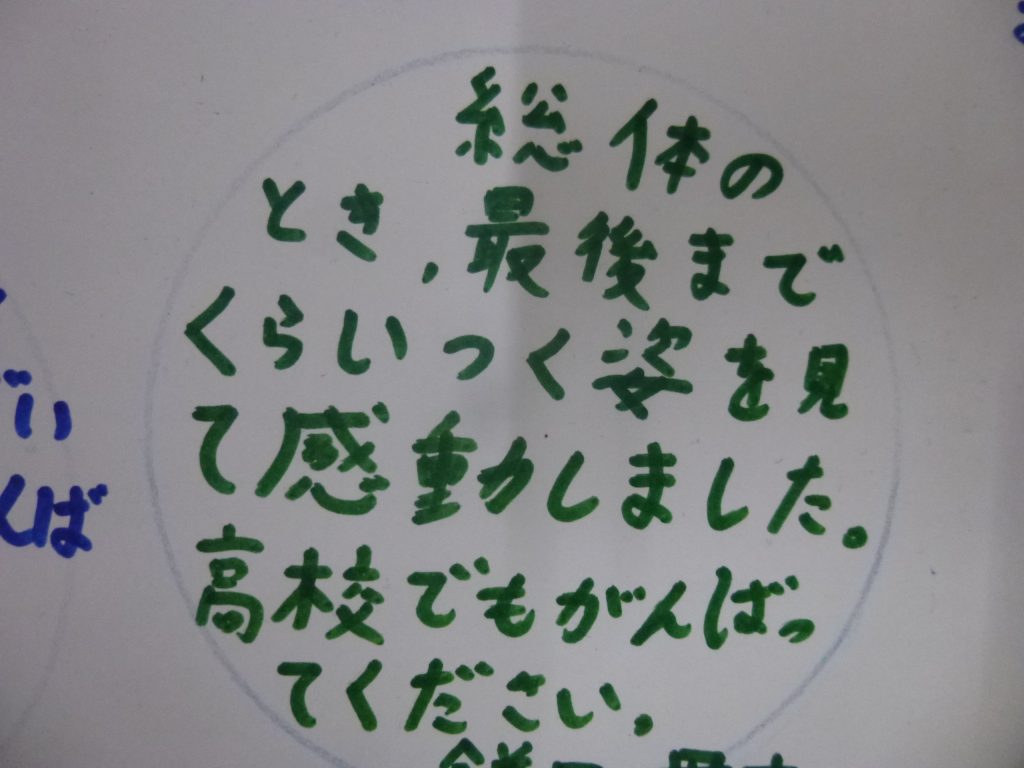 総体の
とき,最後まで
くらいつく姿を見
て感動しました。
高校でもがんばっ
てください.